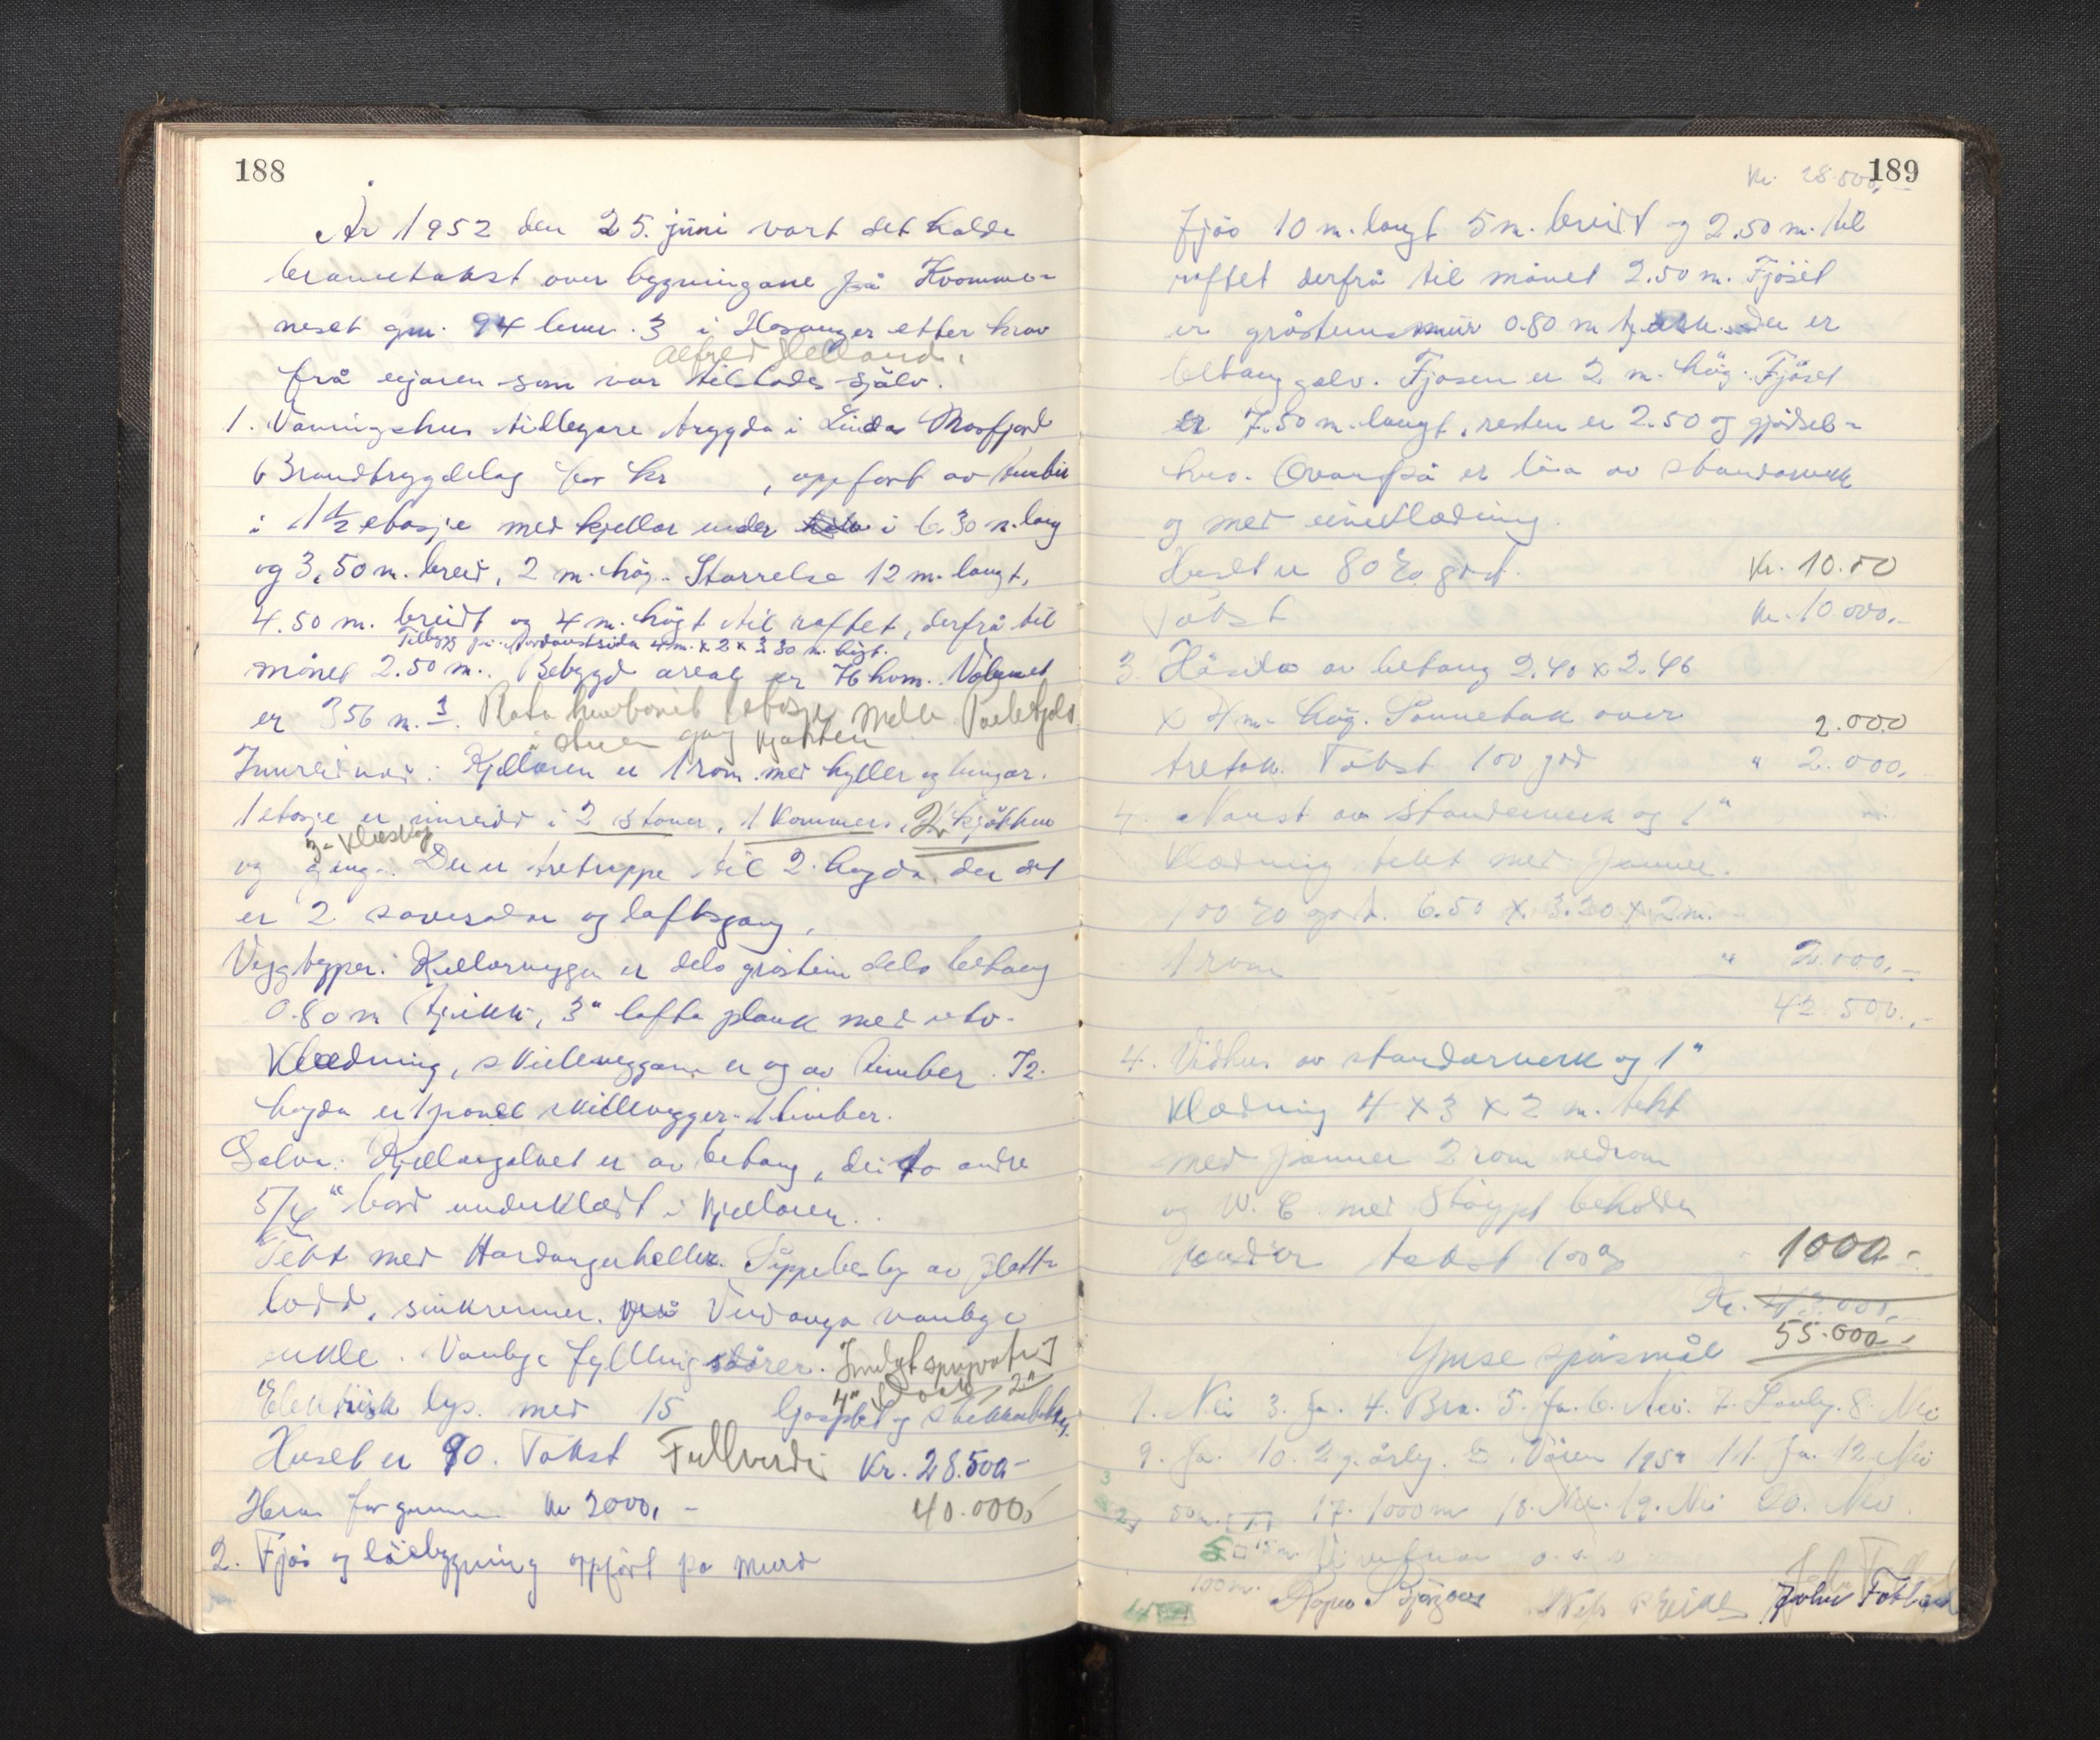 188
År 1952 den 25. juni vart det halde
branntakst over bygningane på Kvamme-
neset gnr. 94 bnr. 3 i Hosanger etter krav
Alfred Helland.
frå eigaren som var tilstades sjølv.
1. Våningshus tidlegare trygda i Lindås Masfjord
Brandtrygdelag for kr , oppført av timber
i 1 1/2 etasje med kjellar under i 6.30 m. lang
og 3,50 m. breid, 2 m. høg. Størrelse 12 m. langt,
4.50 m. breidt og 4 m. högt til raftet, derfrå til
Tilbygg på Nordaustsida 4 m. x 2 x 3.30 m. högt.
mönet 2.50 m. Bebygd areal er 76 kvm. Volumet
er 356 m. 3.
i stuen gang kjökken
Innreidnad: Kjellaren er 1 rom med hyller og bingar.
1 etasje er innreidd i 2 stover, 1 kammers, 2 kjökken
og gang. Der er tretrappe til 2. högda der det
er 2 soverom og loftsgang,
Veggtyper: Kjellarveggen er dels gråstein dels betong
0.80 m tjukk, 3" lafta plank med utv.
Klædning, skilleveggane er og av timber. I 2.
högda er 1 panel skillevegger. 1 timber.
Golva: Kjellargolvet er av betong, dei to andre
5/4" bord underklædt i kjellaren.
Tekt med Hardangerheller. Pippebeslag av flatt-
lodd, sinkrenner. Vindauga vanlege
enkle. Vanlege fyllingsdörer.
4" 2"
Elektrisk lys. med 15 ljospkt og stikkontakter.
Huset er 90. Takst Fullverdi Kr. 28.500-
kr 2000,- 40.000,
2. Fjös og löebygning oppfört på murd
189
Kr. 28.500,-
Fjös 10 m. langt 5 m. breidt og 2.50 m. til
raftet derfrå til mönet 2.50 m. Fjöset
er gråsteinsmur 0.80 m tjukk. Der er
betong golv. Fjosen er 2 m. høg. Fjöset
er 7.50 m. langt, resten er 2.50 og gjödsel-
hus. Ovanpå er löa av standarverk
og med einvklædning.
Huset er 80 % godt. Kr. 10.50
Takst Kr. 10.000,-
3. Hösilo av betong 2.40 x 2.46
x 4 m. høg. Pannetak over 2.000
tretak. Takst 100 god " 2.000,
4. Naust av standerverk og 1"
Klædning tekt med panner.
100 % godt. 6.50 x 3.20 x 2 m.
1 rom " 2.000,-
42.500,-
4. Vedhus av standarverk og 1"
Klædning 4 x 3 x 2 m. tekt
med panner 2 rom vedrom
og W.C. med stöypt behaldar
under takst 100 % 1000-
Kr. 43.000,-
55.000,-
Ymse spörsmål
1. Nei 3. Ja. 4. Bra. 5. Ja. 6. Nei. 7. Lovleg. 8. Nei
9. Ja. 10. 2 g. årleg. Våren 1952 11. Ja. 12. Nei
50 m. 17. 1000 m 18. Nei. 19. Nei 20. Nei.
100 m.
John Fotland